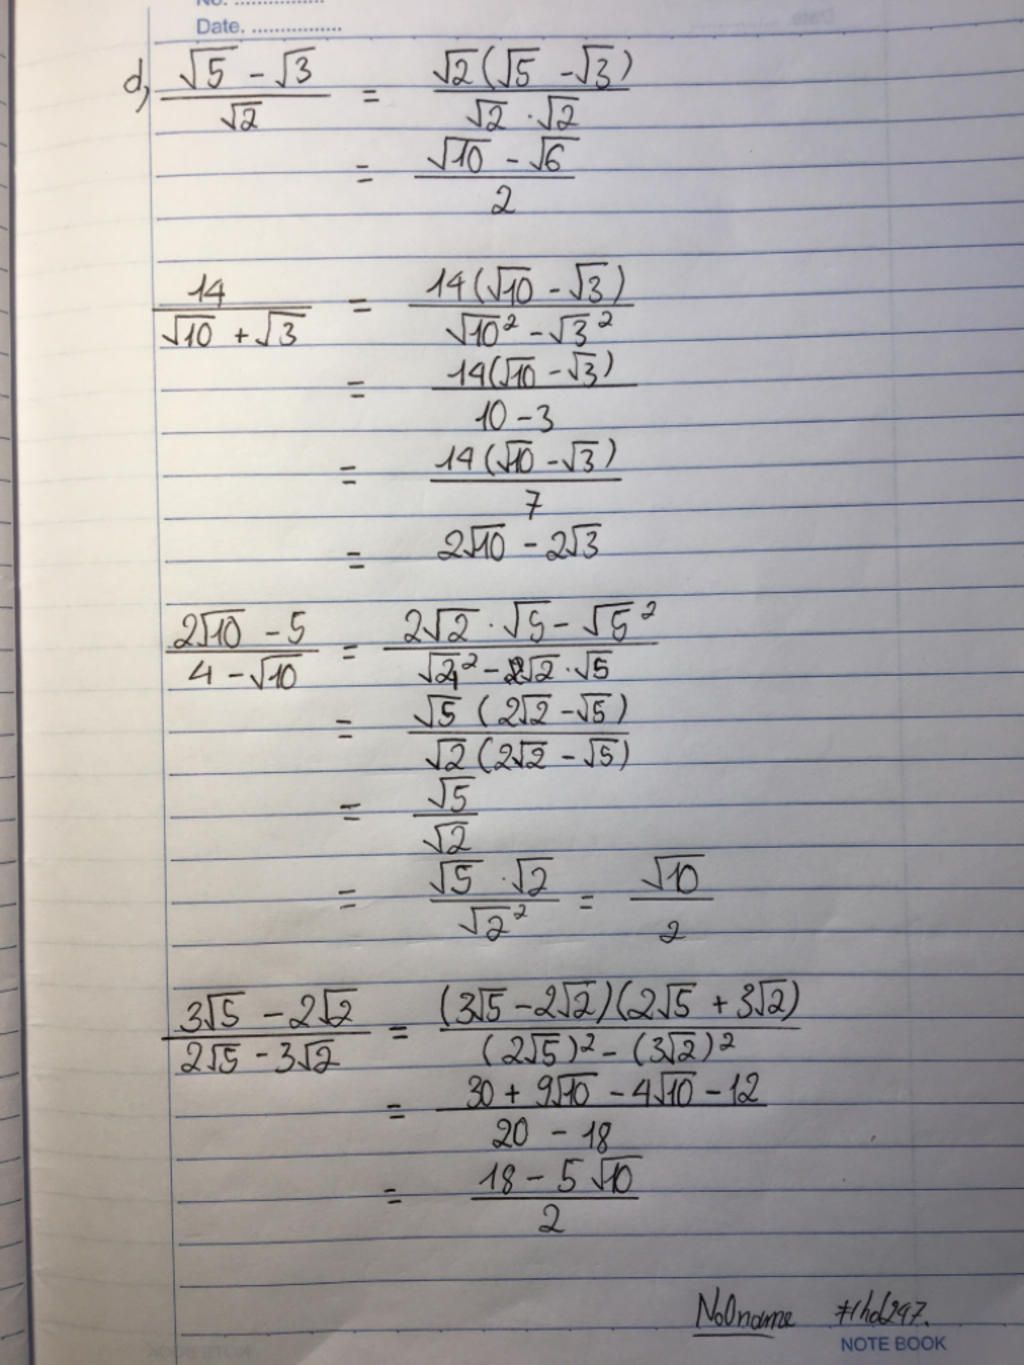 No. ................
Date. ................
d, (√5 - √3)/√2 = √2(√5 - √3)/(√2 · √2)
= (√10 - √6)/2
14/(√10 + √3) = 14(√10 - √3)/(√10² - √3²)
= 14(√10 - √3)/(10 - 3)
= 14(√10 - √3)/7
= 2√10 - 2√3
(2√10 - 5)/(4 - √10) = (2√2 · √5 - √5²)/(√4² - √2 · √5)
= √5 (2√2 - √5)/(√2 (2√2 - √5))
= √5/√2
= (√5 · √2)/√2² = √10/2
(3√5 - 2√2)/(2√5 - 3√2) = (3√5 - 2√2)(2√5 + 3√2)/((2√5)² - (3√2)²)
= (30 + 9√10 - 4√10 - 12)/(20 - 18)
= (18 - 5√10)/2
No0name
NOTE BOOK